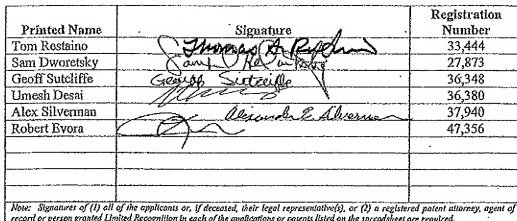 Printed Name Signature Registration Number
Tom Rostaino Thomas A. 33,444
Sam Dworetsky Sam 27,873
Geoff Sutcliffe George Sutcliffe 36,348
Umesh Desai 36,380
Alex Silverman Alexander E. Silverman 37,940
Robert Evora 47,356
Note: Signatures of (1) all of the applicants or, if deceased, their legal representative(s), or (2) a registered patent attorney, agent of
record or person granted Limited Recognition in each of the applications or patents listed on the spreadsheet are required.